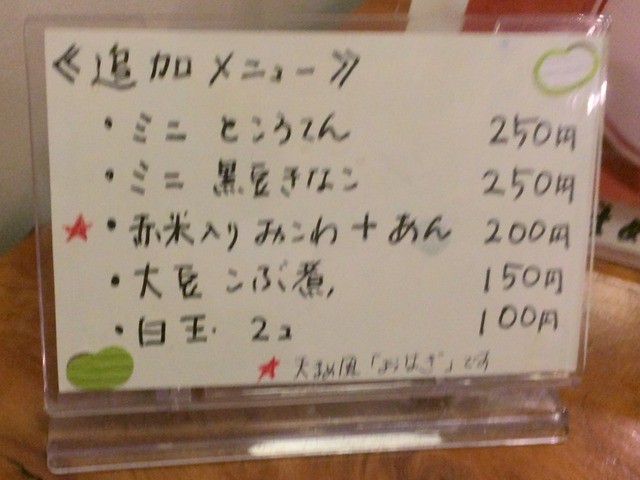 ≪追加メニュー≫
・ミニ ところてん 250円
・ミニ 黒豆きなこ 250円
★・赤米入り おこわ + あん 200円
・大豆 こぶ煮 150円
・白玉 2コ 100円
★ 「おはぎ」です